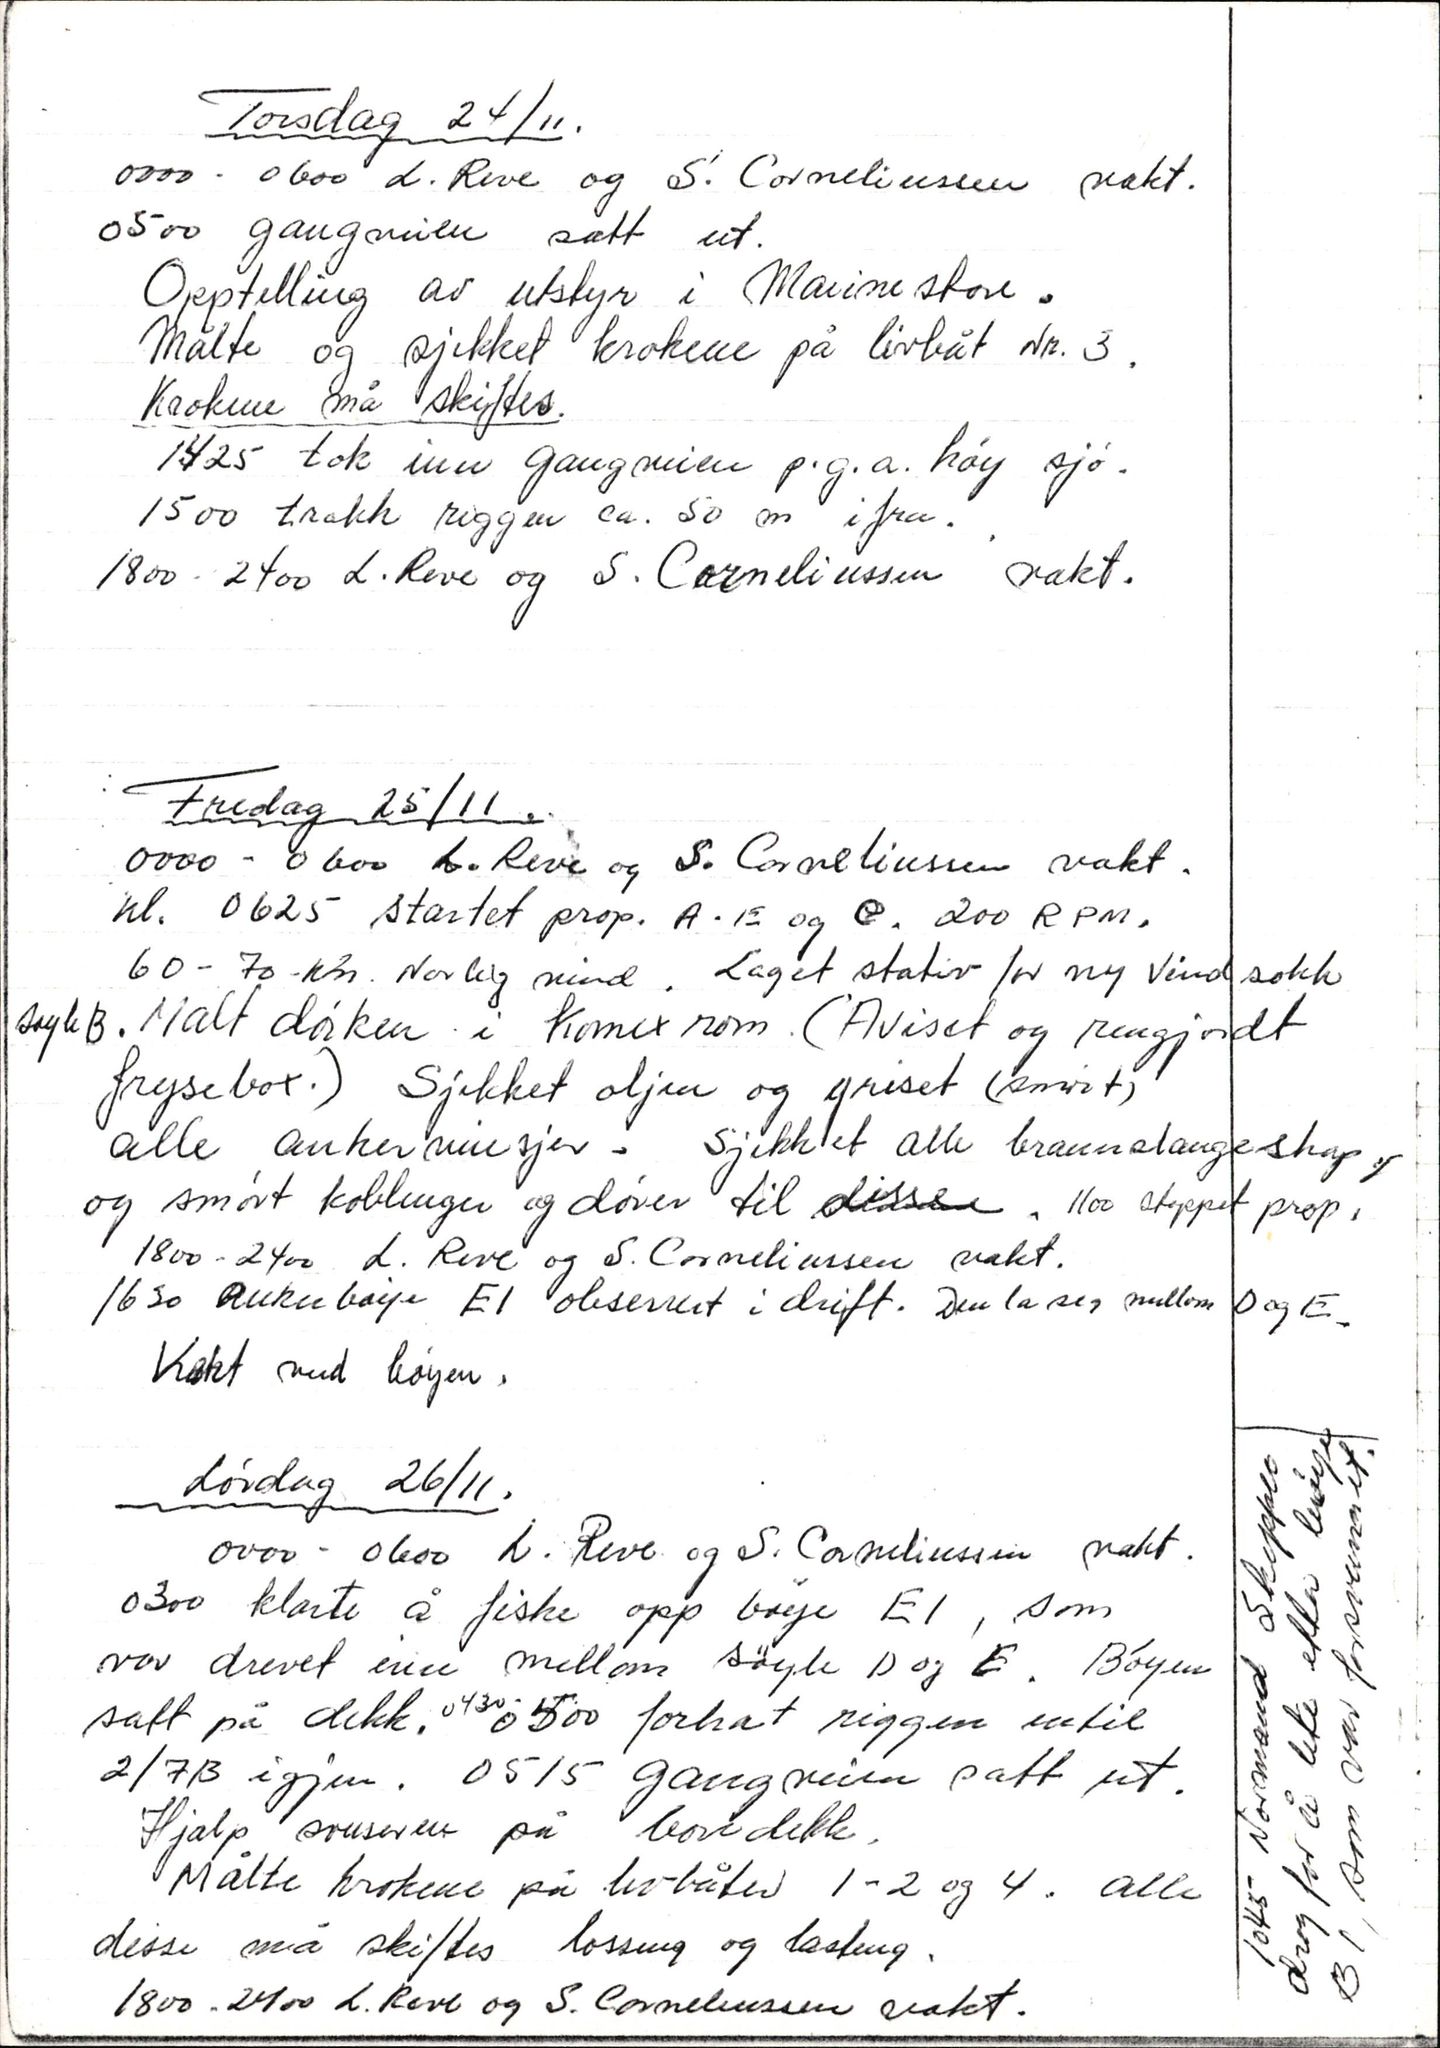 Torsdag 24/11.
0000 - 0600 L. Reve og S. Corneliussen vakt.
0500 gangveien satt ut.
Opptelling av utstyr i Marinestore.
Målte og sjekket krokene på livbåt Nr. 3.
Krokene må skiftes.
1425 tok inn gangveien p.g.a. høy sjø.
1500 trakk riggen ca. 50 m ifra.
1800 - 2400 L. Reve og S. Corneliussen vakt.
Fredag 25/11.
0000 - 0600 L. Reve og S. Corneliussen vakt.
kl. 0625 startet prop. A - E og C. 200 RPM.
60 - 70 kn. Norlig vind. Laget stativ for ny Vindsokk
søyle B. Malt dørken i Komex rom. (Aviset og rengjordt
frysebox.) Sjekket oljen og griset (smørt)
alle ankervinsjer. Sjekket alle brannslangeskap
og smørt koblinger og dører til disse. 1100 stoppet prop.
1800 - 2400 L. Reve og S. Corneliussen vakt.
1630 Ankerbøye E1 observert i drift. Den la seg mellom D og E.
Vakt ved bøyen.
Lørdag 26/11.
0000 - 0600 L. Reve og S. Corneliussen vakt.
0300 klarte å fiske opp bøye E1, som
var drevet inn mellom søyle D og E. Bøyen
satt på dekk. 0430 - 0500 forhat riggen intil
2/7B igjen. 0515 gangveien satt ut.
Hjalp på boredekk.
Målte krokene på livbåter 1 - 2 og 4. Alle
disse må skiftes lossing og lasting.
1800 - 2400 L. Reve og S. Corneliussen vakt.
1045 - Normand Skipper
drog for å lete etter bøye
B1, som var forsvunnet.